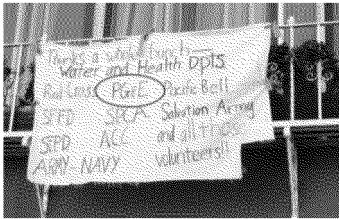 Thanks a whole bunch—
Water and Health Dpts
Red Cross PG&E Pacific Bell
SFFD SPCA Salvation Army
SFPD ACC and all those
ARMY NAVY Volunteers!!